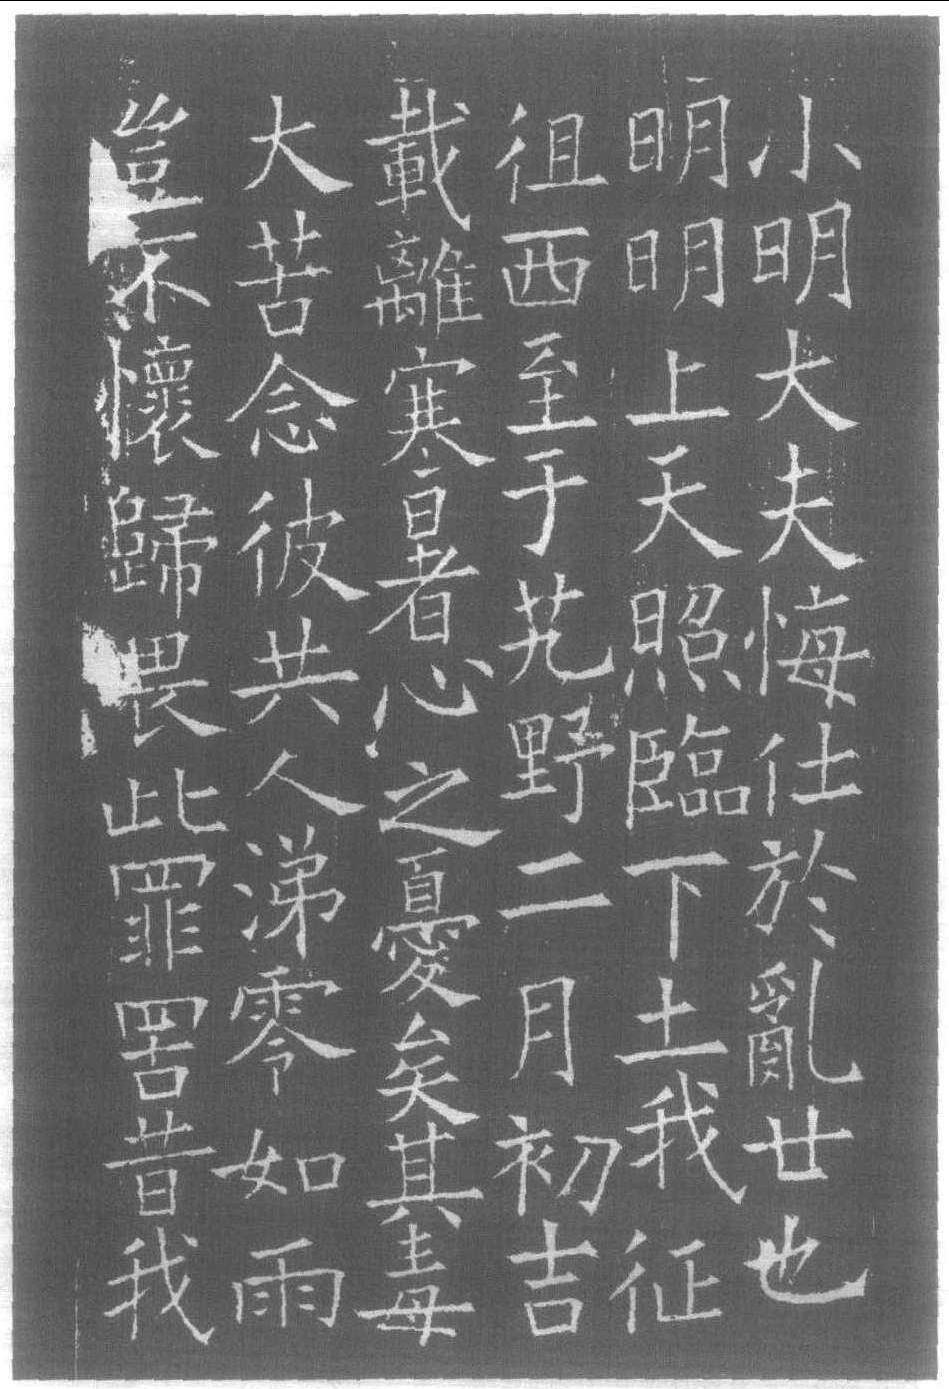 小明大夫悔仕於亂廿也
明明上天照臨下土我征
徂西至于艽野二月初吉
載離寒暑心之憂矣其毒
大苦念彼共人涕零如雨
豈不懷歸畏此罪罟昔我